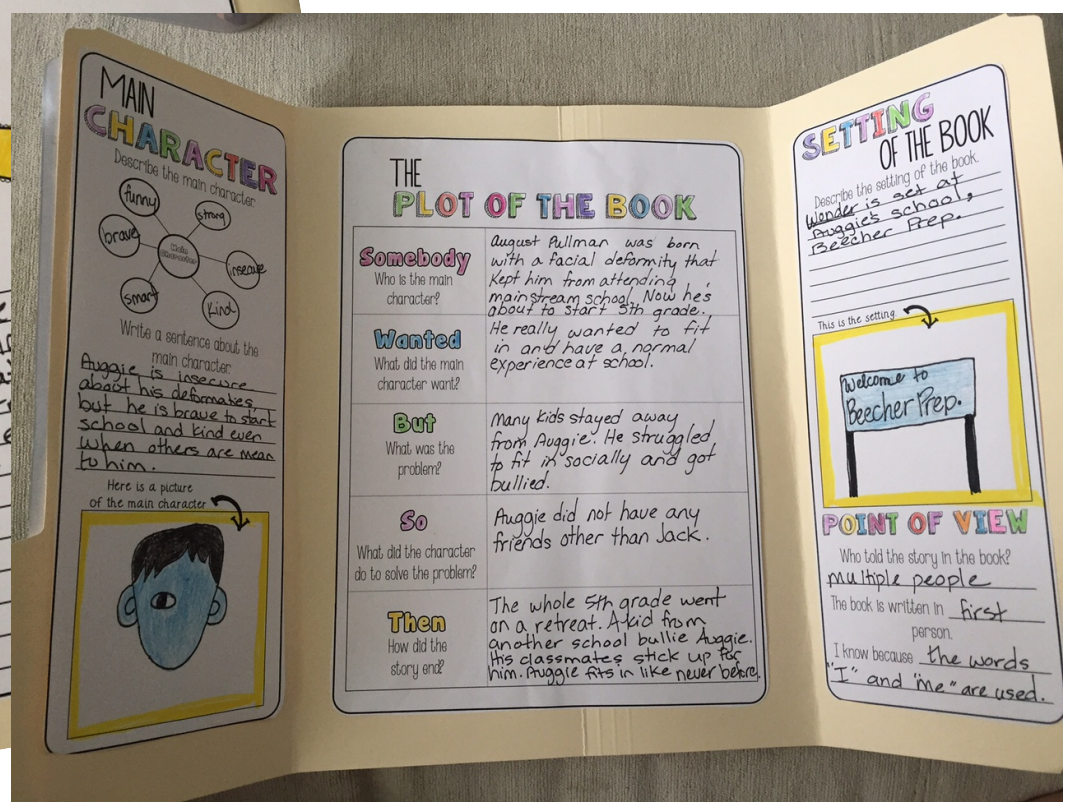 MAIN
CHARACTER
Describe the main character.
funny
strong
brave
Main
Character
insecure
smart
kind
Write a sentence about the
main character
Auggie is insecure
about his deformaties,
but he is brave to start
school and kind even
when others are mean
to him.
Here is a picture
of the main character
THE
PLOT OF THE BOOK
Somebody
Who is the main
character?
August Pullman was born
with a facial deformity that
kept him from attending
mainstream school. Now he's
about to start 5th grade.
Wanted
What did the main
character want?
He really wanted to fit
in and have a normal
experience at school.
But
What was the
problem?
Many kids stayed away
from Auggie. He struggled
to fit in socially and got
bullied.
So
What did the character
do to solve the problem?
Auggie did not have any
friends other than Jack.
Then
How did the
story end?
The whole 5th grade went
on a retreat. A kid from
another school bullie Auggie.
His classmates stick up for
him. Auggie fits in like never before.
SETTING
OF THE BOOK
Describe the setting of the book.
Wonder is set at
Auggie's school,
Beecher Prep.
This is the setting
Welcome to
Beecher Prep.
POINT OF VIEW
Who told the story in the book?
multiple people
The book is written in first
person.
I know because the words
"I" and "me" are used.